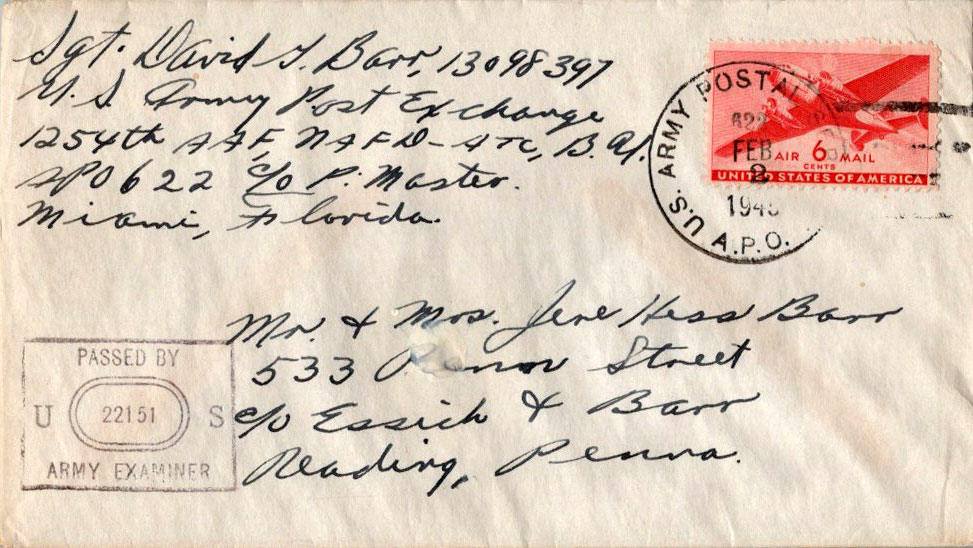 Sgt. David J. Barr, 13098397
U.S. Army Post Exchange
1254th AAF, NAFD-ATC, B.A.
APO 622 c/o P. Master.
Miami, Florida.
U.S. ARMY POSTAL
622
FEB
2
A.P.O.
AIR 6 MAIL
CENTS
UNITED STATES OF AMERICA
Mr. & Mrs. Jere Hess Barr
533 Penn Street
c/o Essich & Barr
Reading, Penna.
PASSED BY
U 22151 S
ARMY EXAMINER